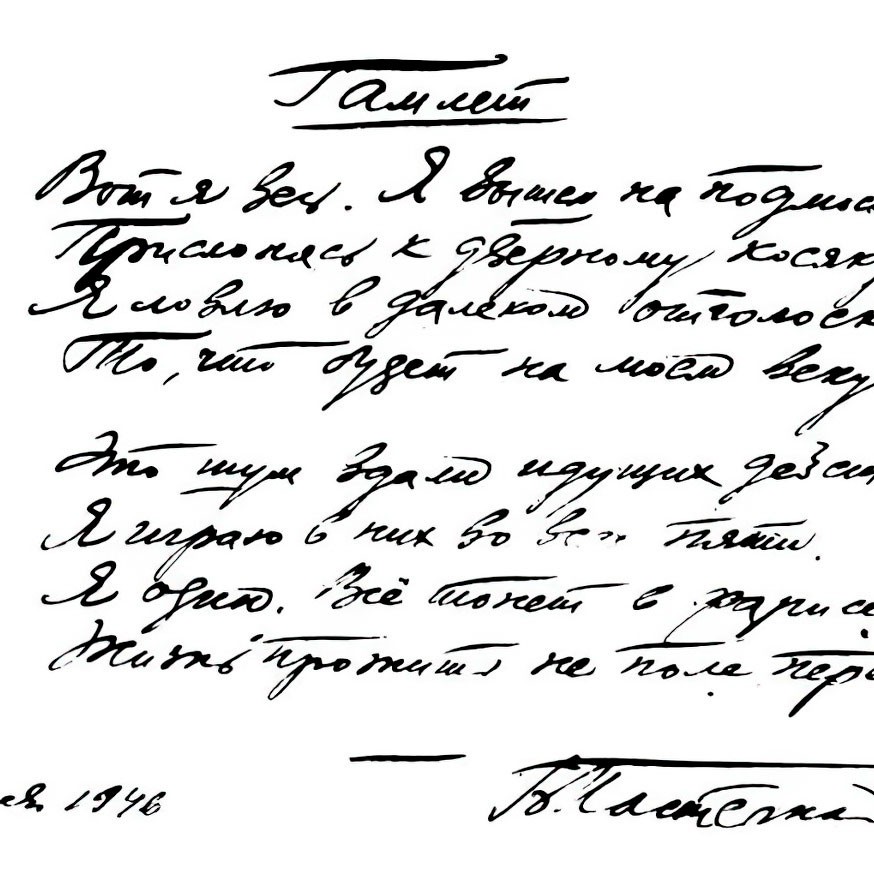 Гамлет
Вот я весь. Я вышел на подмос
Прислонясь к дверному косяк
Я ловлю в далеком отголоск
То, что будет на моем веку
Это шум вдали идущих дейст
Я играю в них во всех пяти.
Я один. Всё тонет в фарисе
Жизнь прожить не поле пере
ся 1946
Б. Пастерна